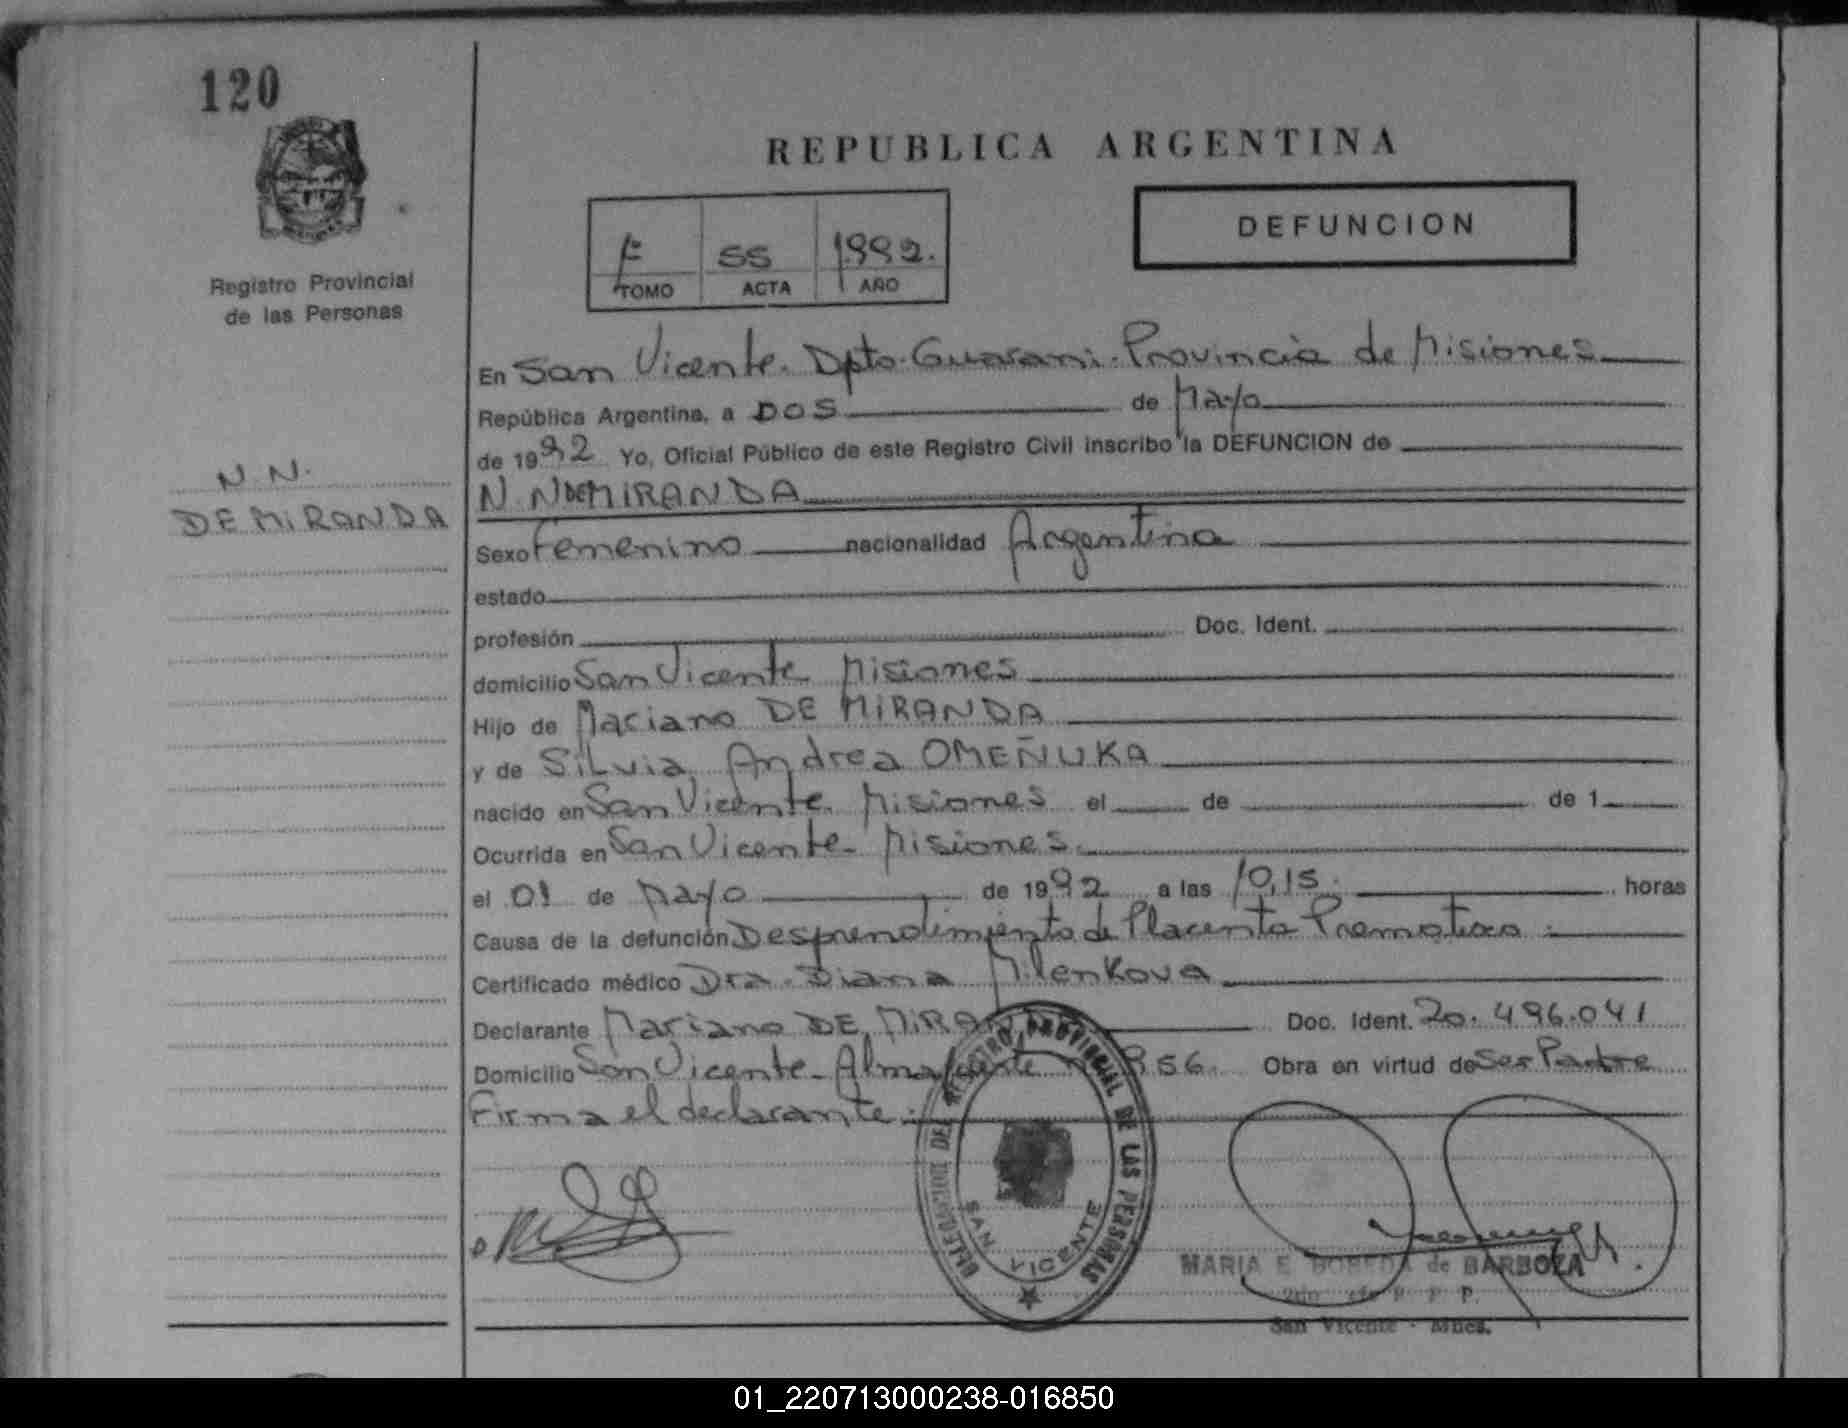 120
REPUBLICA ARGENTINA
DEFUNCION
1º SS 1.992.
TOMO ACTA AÑO
Registro Provincial
de las Personas
En San Vicente. Dpto. Guarani. Provincia de Misiones
República Argentina, a DOS de Mayo
de 1992 Yo, Oficial Público de este Registro Civil inscribo la DEFUNCION de
N.N.
DE MIRANDA
N. N DE MIRANDA
Sexo Femenino nacionalidad Argentina
estado
profesión Doc. Ident.
domicilio San Vicente Misiones
Hijo de Mariano DE MIRANDA
y de Silvia Andrea OMEÑUKA
nacido en San Vicente. Misiones el de de 1
Ocurrida en San Vicente. Misiones.
el 01 de Mayo de 1992 a las 10,15. horas
Causa de la defunción Desprendimiento de Placenta Prematura.
Certificado médico Dra. Diana Milenkova
Declarante Mariano DE MIRANDA Doc. Ident. 20.496.041
Domicilio San Vicente. Almafuerte Nº 856. Obra en virtud de Ser Padre
Firma el declarante.
REGISTRO PROVINCIAL DE LAS PERSONAS
SAN VICENTE
MARIA E BOBEDA de BARBOZA
San Vicente - Mnes.
01_220713000238-016850